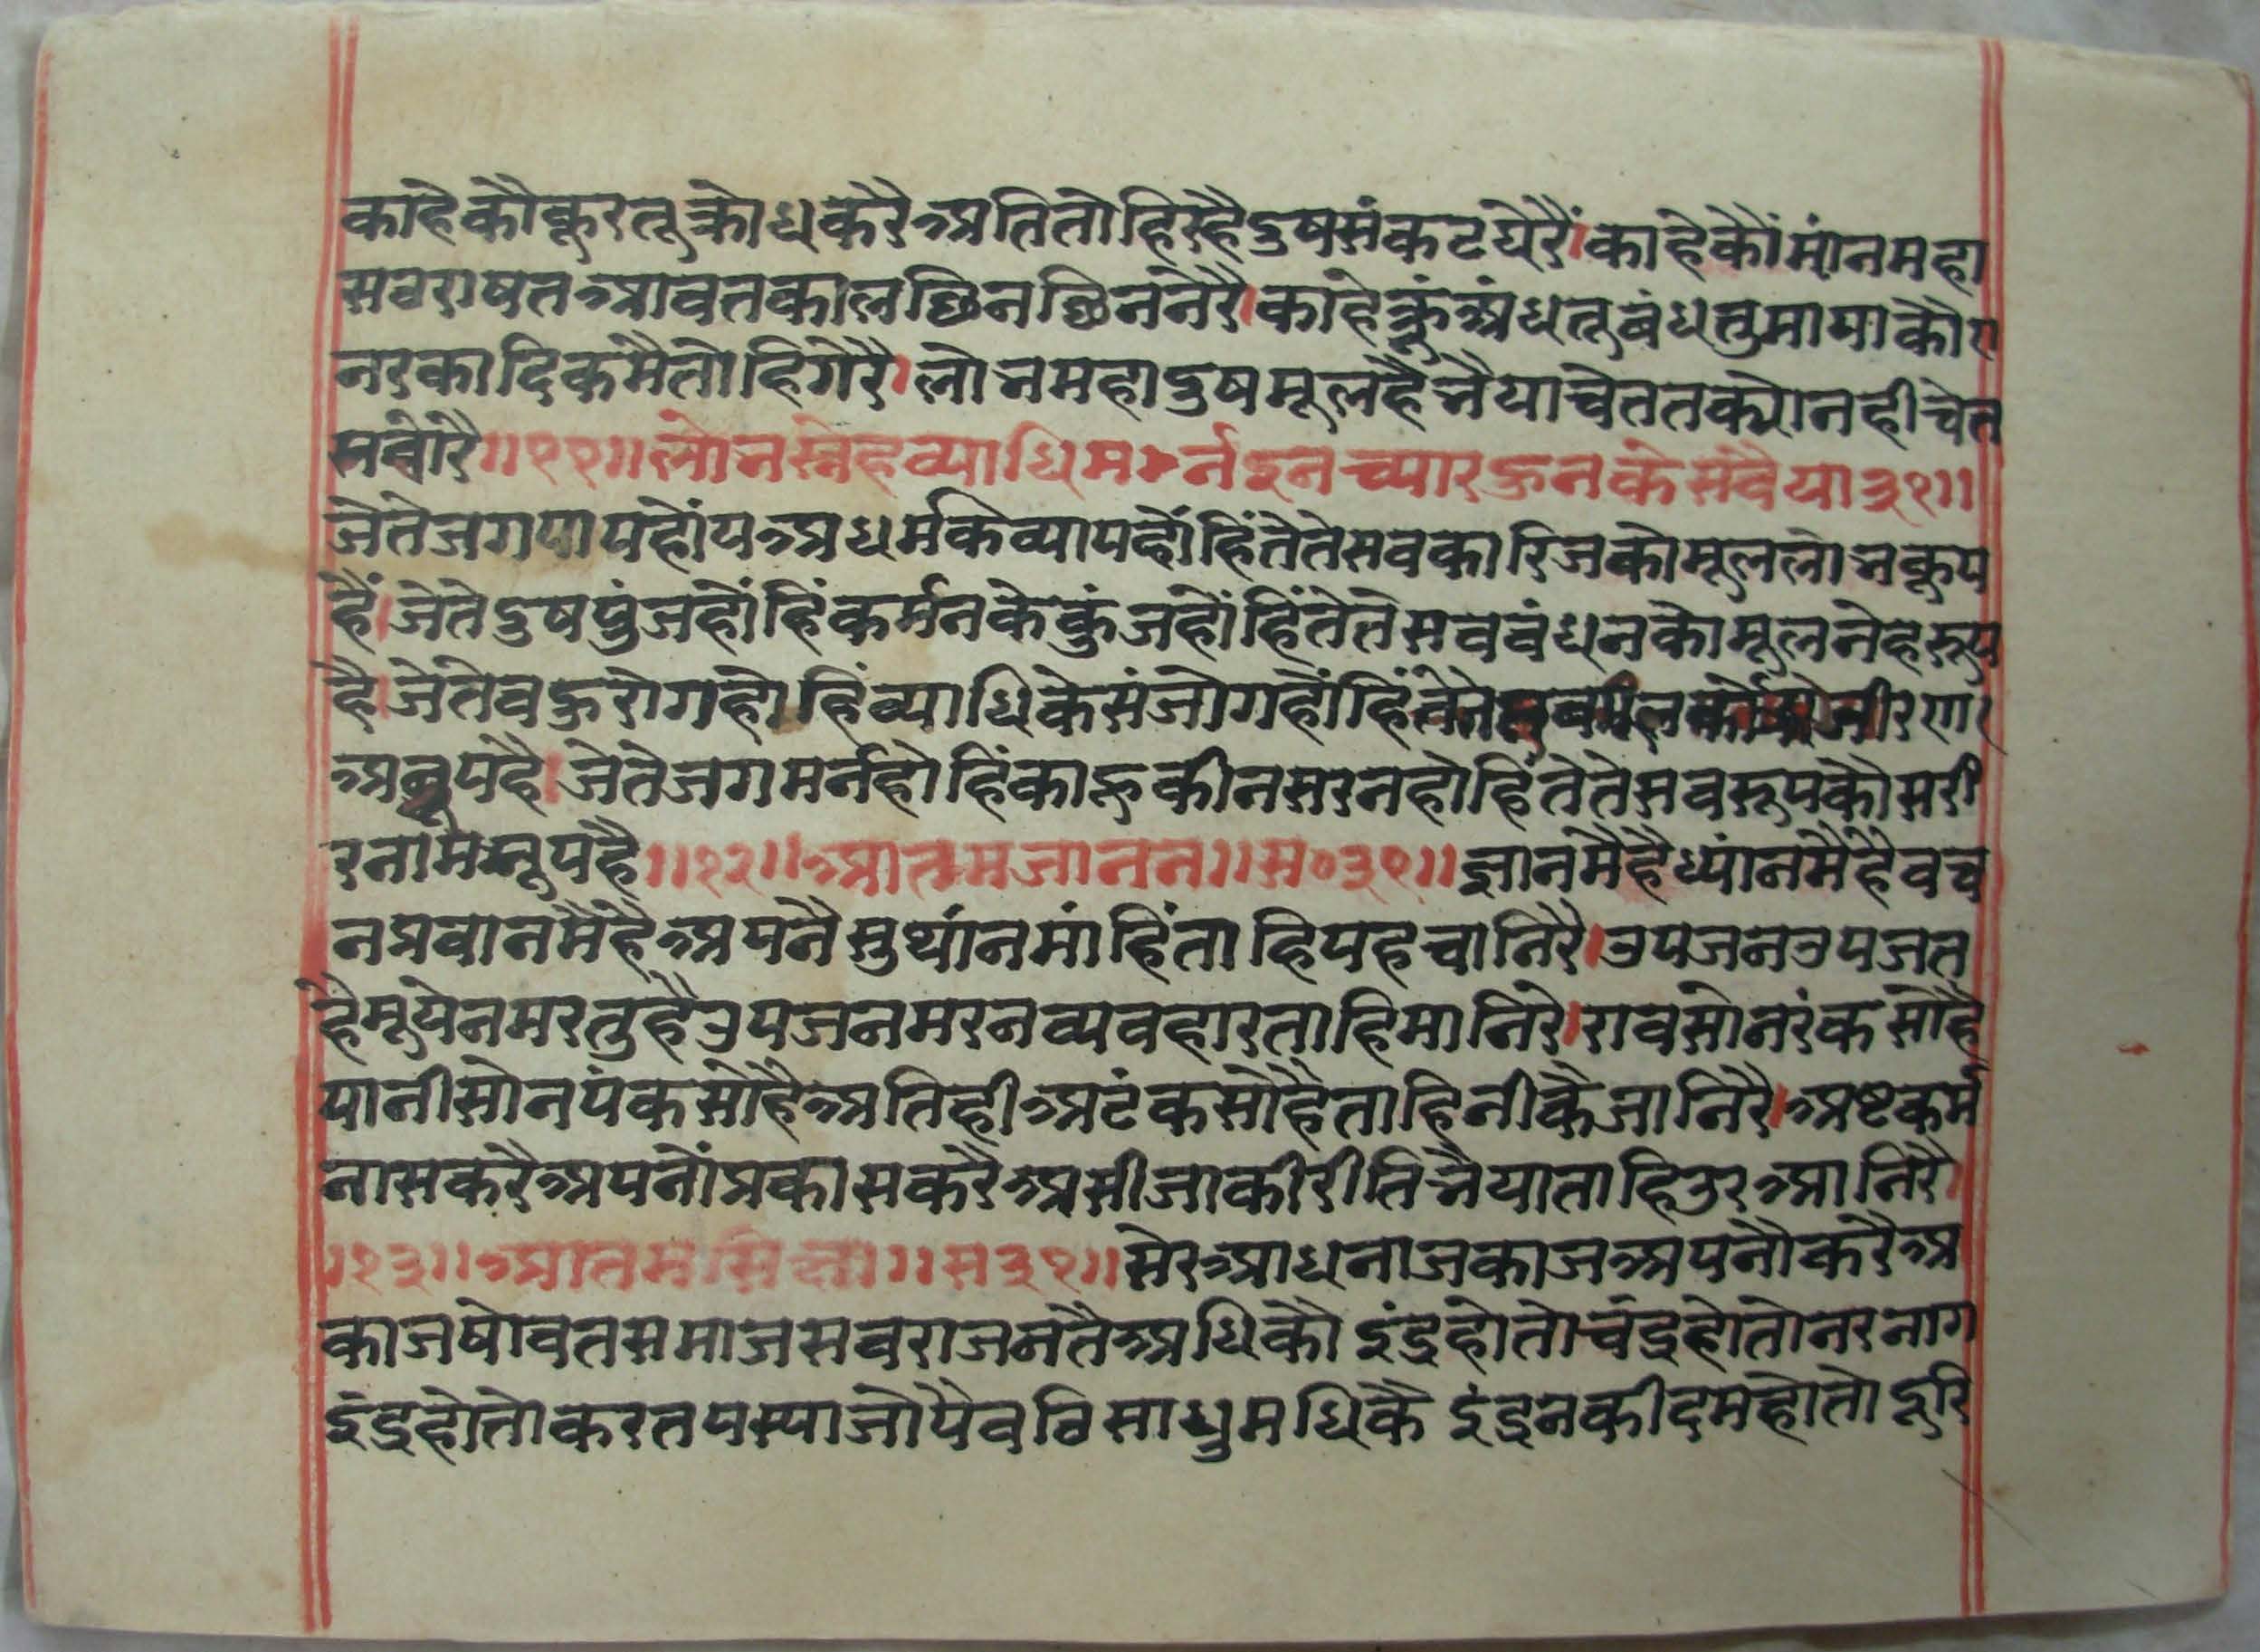 काहेकौकूरतूक्रोधकरैअतितोहिरहैदुषसंकटघेरैं।काहेकौंमांनमहा
सवराषतआवतकालछिनछिननेरै।काहेकूंअंधतूबंधतुमायाकौए
नरकादिकमैतोहिगेरै।लोभमहादुषमूलहैभैयाचेततक्योनहीचेत
सवेरै॥११॥लोभस्नेहव्याधिमर्नइनच्यारऊनकेसवैया३१॥
जेतेजगपापहोंयअधर्मकेव्यापहोंहिंतेतेसवकारिजकोमूललोभकूप
हैं।जेतेदुषपुंजहोंहिंकर्मनकेकुंजहोंहिंतेतेसववंधनकोमूलनेहरूप
है।जेतेवऊरोगहोहिंव्याधिकेसंजोगहोंहिंतेते
अनूपहै।जेतेजगमर्नहोहिंकाहूकीनसरनहोहिंतेतेसवरूपकौसरी
रनामभूपहै॥१२॥आतमजानन॥स०३१॥ज्ञानमैहैध्यांनमैहैवच
नप्रवानमैहैअपनैसुथांनमांहिंताहिपहचानिरै।उपजनउपजत
हैमूयेनमरतुहैउपजनमरनव्यवहारताहिमानिरे।रावसोनरंकसोहै
पानीसोनपंकसोहैअतिहीअटंकसोहैताहिनीकैजानिरै।अष्टकर्म
नासकरैअपनोंप्रकासकरैअसीजाकीरीतिभैयाताहिउरआनिरै।
॥१३॥आतमसिक्षा॥स३१॥मेरआधनाजकाजअपनौकरैअ
काजषोवतसमाजसवराजनतैअधिकौइंद्रहोतोचंद्रहोतोनरनाग
इंद्रहोतोकरततपस्याजोपैवविसाधुमधिकैइंद्रनकीदमहोतोदूरि